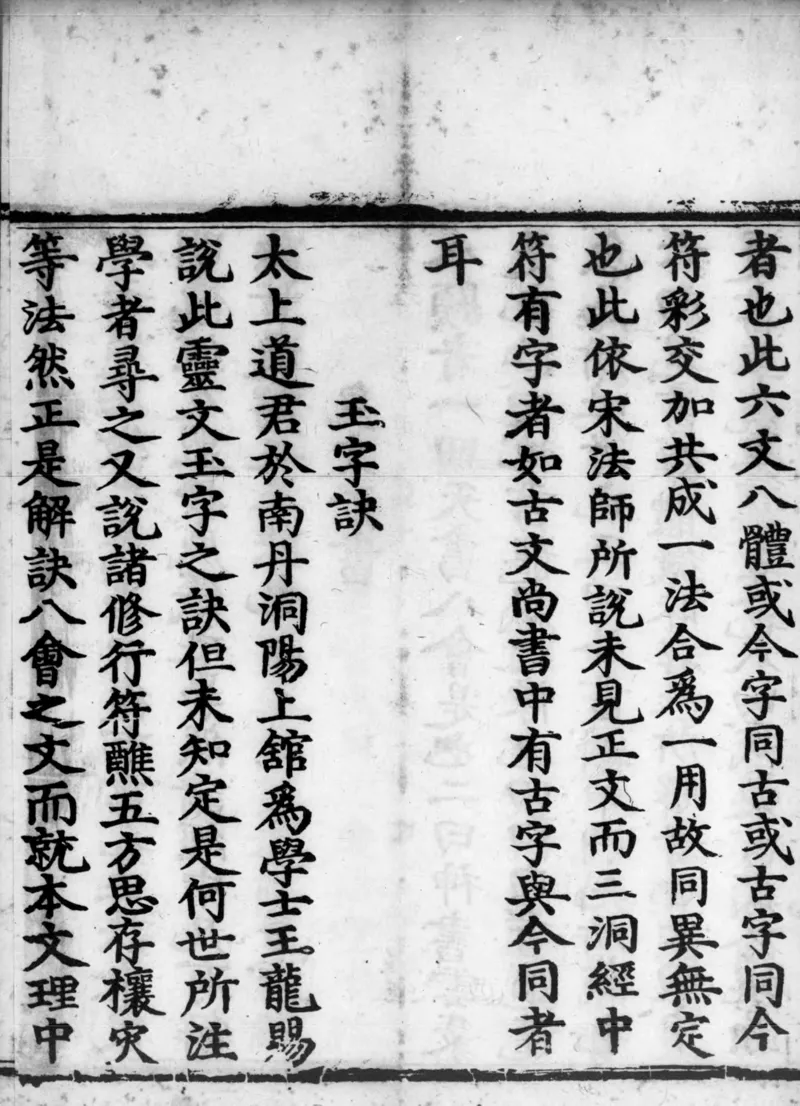 者也此六文八體或今字同古或古字同今
符彩交加共成一法合爲一用故同異無定
也此依宋法師所說未見正文而三洞經中
符有字者如古文尚書中有古字與今同者
耳
玉字訣
太上道君於南丹洞陽上舘爲學士王龍賜
說此靈文玉字之訣但未知定是何世所注
學者尋之又說諸修行符醮五方思存欀灾
等法然正是解訣八會之文而就本文理中